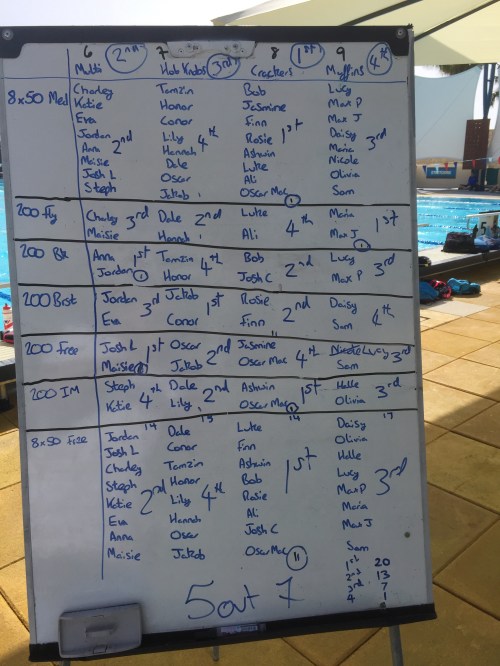 6 2nd 7 8 1st 9 4th
Multi Hob Knobs 3rd Crackers Muffins
8x50 Med Charley Tamzin Bob Lucy
Katie Honor Jasmine Max P
Eva Conor Finn Max J
Jordan Lily 4th Rosie 1st Daisy
Anna 2nd Hannah Ashwin Maria 3rd
Maisie Dale Luke Nicole
Josh L Oscar Ali Olivia
Steph Jakob Oscar Mac Sam
200 Fly Charley 3rd Dale 2nd Luke 4th Maria 1st
Maisie Hannah Ali Max J
200 Bk Anna 1st Tamzin 4th Bob 2nd Lucy 3rd
Jordan Honor Josh C Max P
200 Brst Jordan 3rd Jakob 1st Rosie 2nd Daisy 4th
Eva Conor Finn Sam
200 Free Josh L 1st Oscar 2nd Jasmine 4th Nicole Lucy 3rd
Maisie Jakob Oscar Mac Sam
200 IM Steph 4th Dale 2nd Ashwin 1st Holle 3rd
Katie Lily Oscar Mac Olivia
14 15 14 17
8x50 Free Jordan Dale Luke Daisy
Josh L Conor Finn Olivia
Charley Tamzin Ashwin Holle
Steph Honor Bob 1st Lucy
Katie 2nd Lily 4th Rosie Max P 3rd
Eva Hannah Ali Maria
Anna Oscar Josh C Max J
Maisie Jakob Oscar Mac 11 Sam
1st 20
2nd 13
3rd 7
4 1
5 out 7